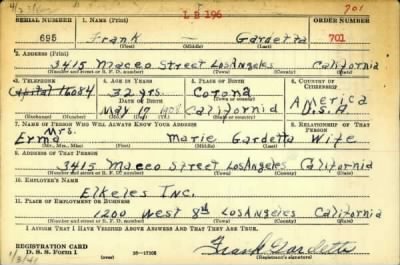 L B 196
701
SERIAL NUMBER 1. NAME (Print) ORDER NUMBER
695 Frank — Gardetta 701
(First) (Middle) (Last)
2. ADDRESS (Print)
3415 Macco Street Los Angeles California
(Number and street or R. F. D. number) (Town) (County) (State)
3. TELEPHONE 4. AGE IN YEARS 5. PLACE OF BIRTH 6. COUNTRY OF CITIZENSHIP
Capital 16084 32 yrs. Corona America
DATE OF BIRTH
May 17 California U.S.A
7. NAME OF PERSON WHO WILL ALWAYS KNOW YOUR ADDRESS 8. RELATIONSHIP OF THAT PERSON
Mrs.
Erma Marie Gardetta Wife
(Mr., Mrs., Miss) (First) (Middle) (Last)
9. ADDRESS OF THAT PERSON
3415 Macco Street Los Angeles California
(Number and street or R. F. D. number) (Town) (County) (State)
10. EMPLOYER'S NAME
Elkeles Inc.
11. PLACE OF EMPLOYMENT OR BUSINESS
1200 West 8th Los Angeles California
(Number and street or R. F. D. number) (Town) (County) (State)
I AFFIRM THAT I HAVE VERIFIED ABOVE ANSWERS AND THAT THEY ARE TRUE.
REGISTRATION CARD
D. S. S. Form 1 16—17105 Frank Gardetta
(Registrant's signature)
1/3/41